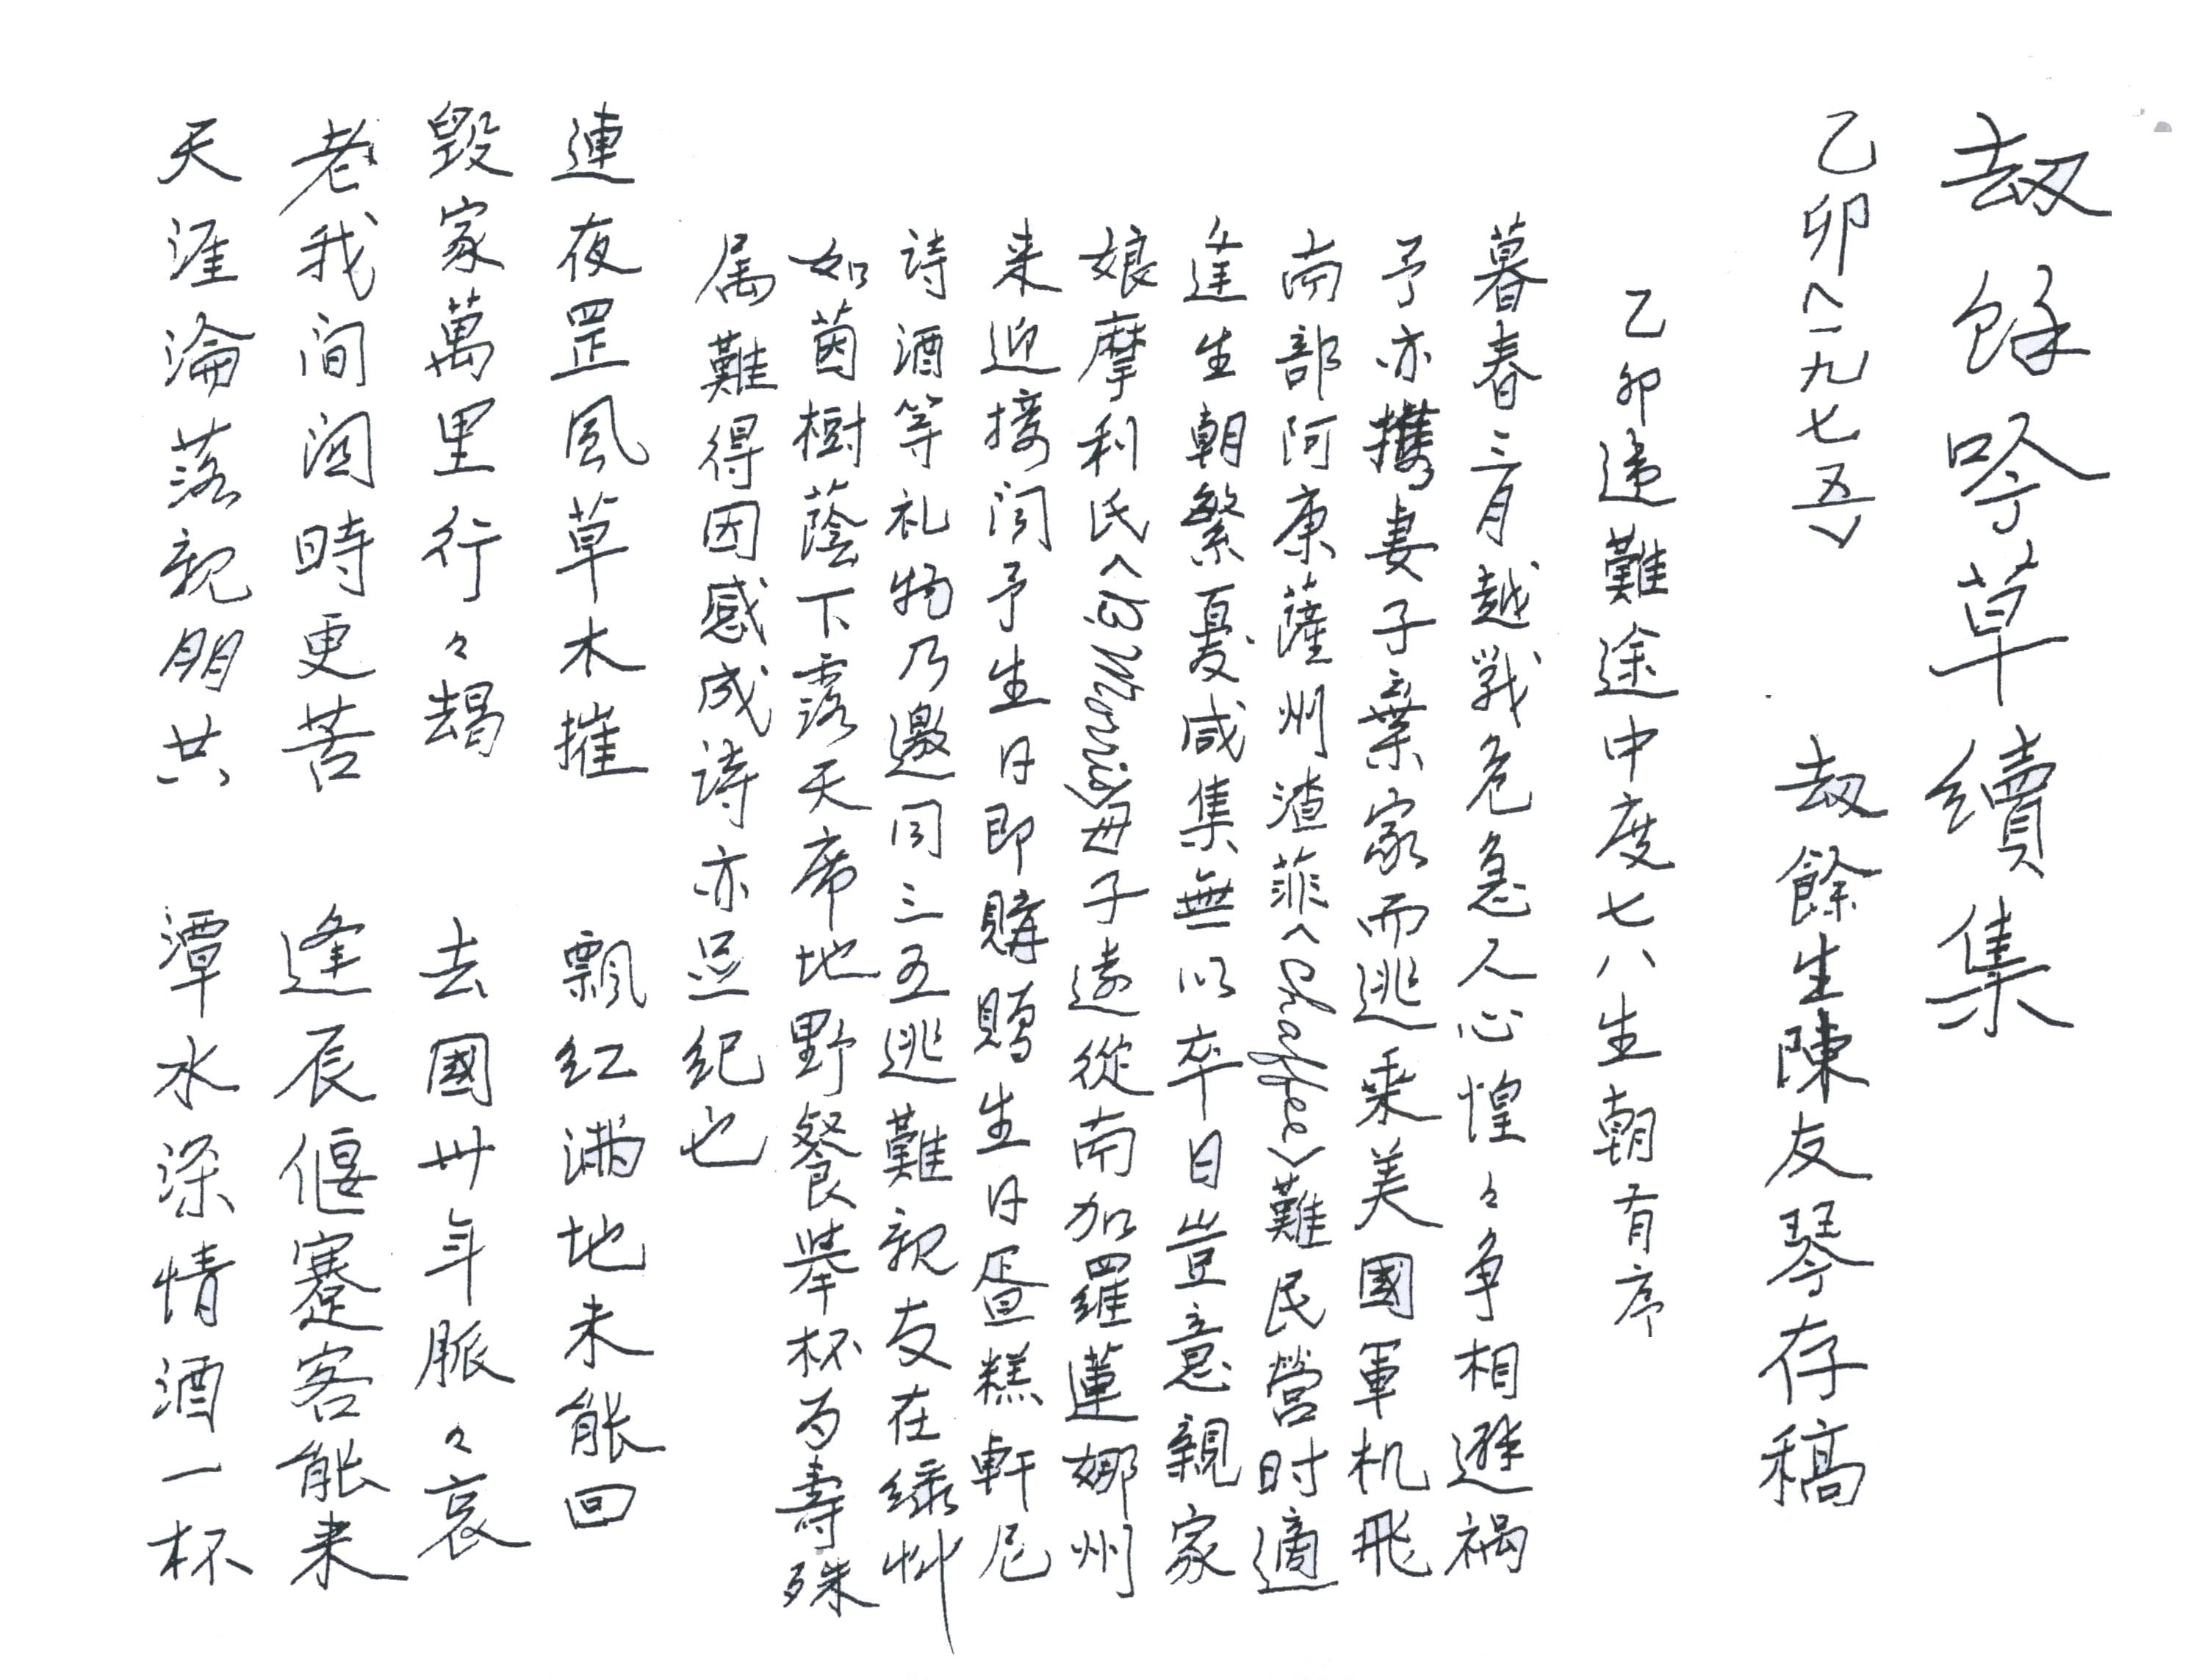 劫餘吟草續集
乙卯〈一九七五〉 劫餘生陳友琴存稿
乙卯逃難途中度七八生朝有序
暮春三月越戰危急人心惶々爭相避禍
予亦攜妻子棄家而逃乘美國軍机飛
南部阿康薩州渣菲〈Chaffee〉難民營时適
逢生朝繁憂咸集無以卒日豈意親家
娘摩利氏〈B. Morris〉母子遠從南加羅蓮娜州
来迎接闻予生日即購贈生日蛋糕軒尼
诗酒等礼物乃邀同三五逃難親友在绿草
如茵樹蔭下露天席地野餐舉杯为壽殊
属難得因感成诗亦足纪也
連夜罡風草木摧 飄红满地未能回
毀家萬里行々朅 去國卅年脈々哀
老我间関時更苦 逢辰偃蹇客能来
天涯淪落親朋共 潭水深情酒一杯